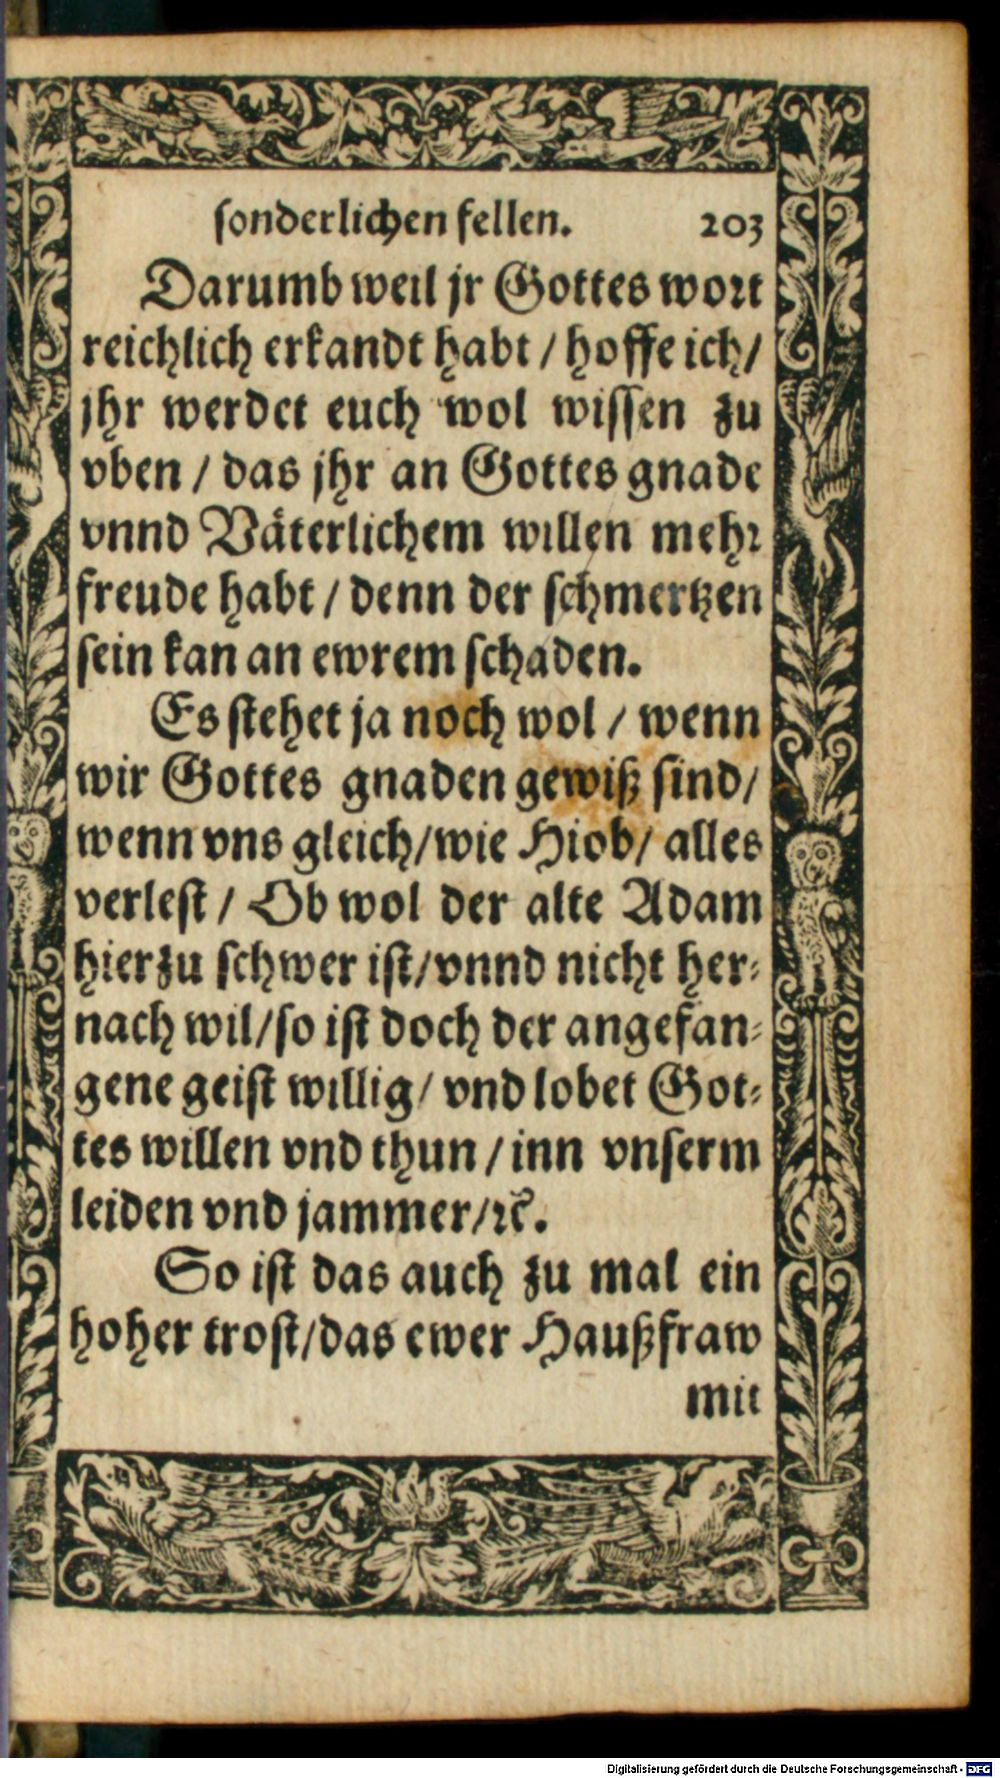 sonderlichen fellen. 203
Darumb weil jr Gottes wort
reichlich erkandt habt / hoffe ich /
jhr werdet euch wol wissen zu
vben / das jhr an Gottes gnade
vnnd Väterlichem willen mehr
freude habt / denn der schmertzen
sein kan an ewrem schaden.
Es stehet ja noch wol / wenn
wir Gottes gnaden gewiß sind /
wenn vns gleich / wie Hiob / alles
verlest / Ob wol der alte Adam
hierzu schwer ist / vnnd nicht her⸗
nach wil / so ist doch der angefan⸗
gene geist willig / vnd lobet Got⸗
tes willen vnd thun / inn vnserm
leiden vnd jammer / ꝛc̃.
So ist das auch zu mal ein
hoher trost / das ewer Haußfraw
mit
Digitalisierung gefördert durch die Deutsche Forschungsgemeinschaft - DFG